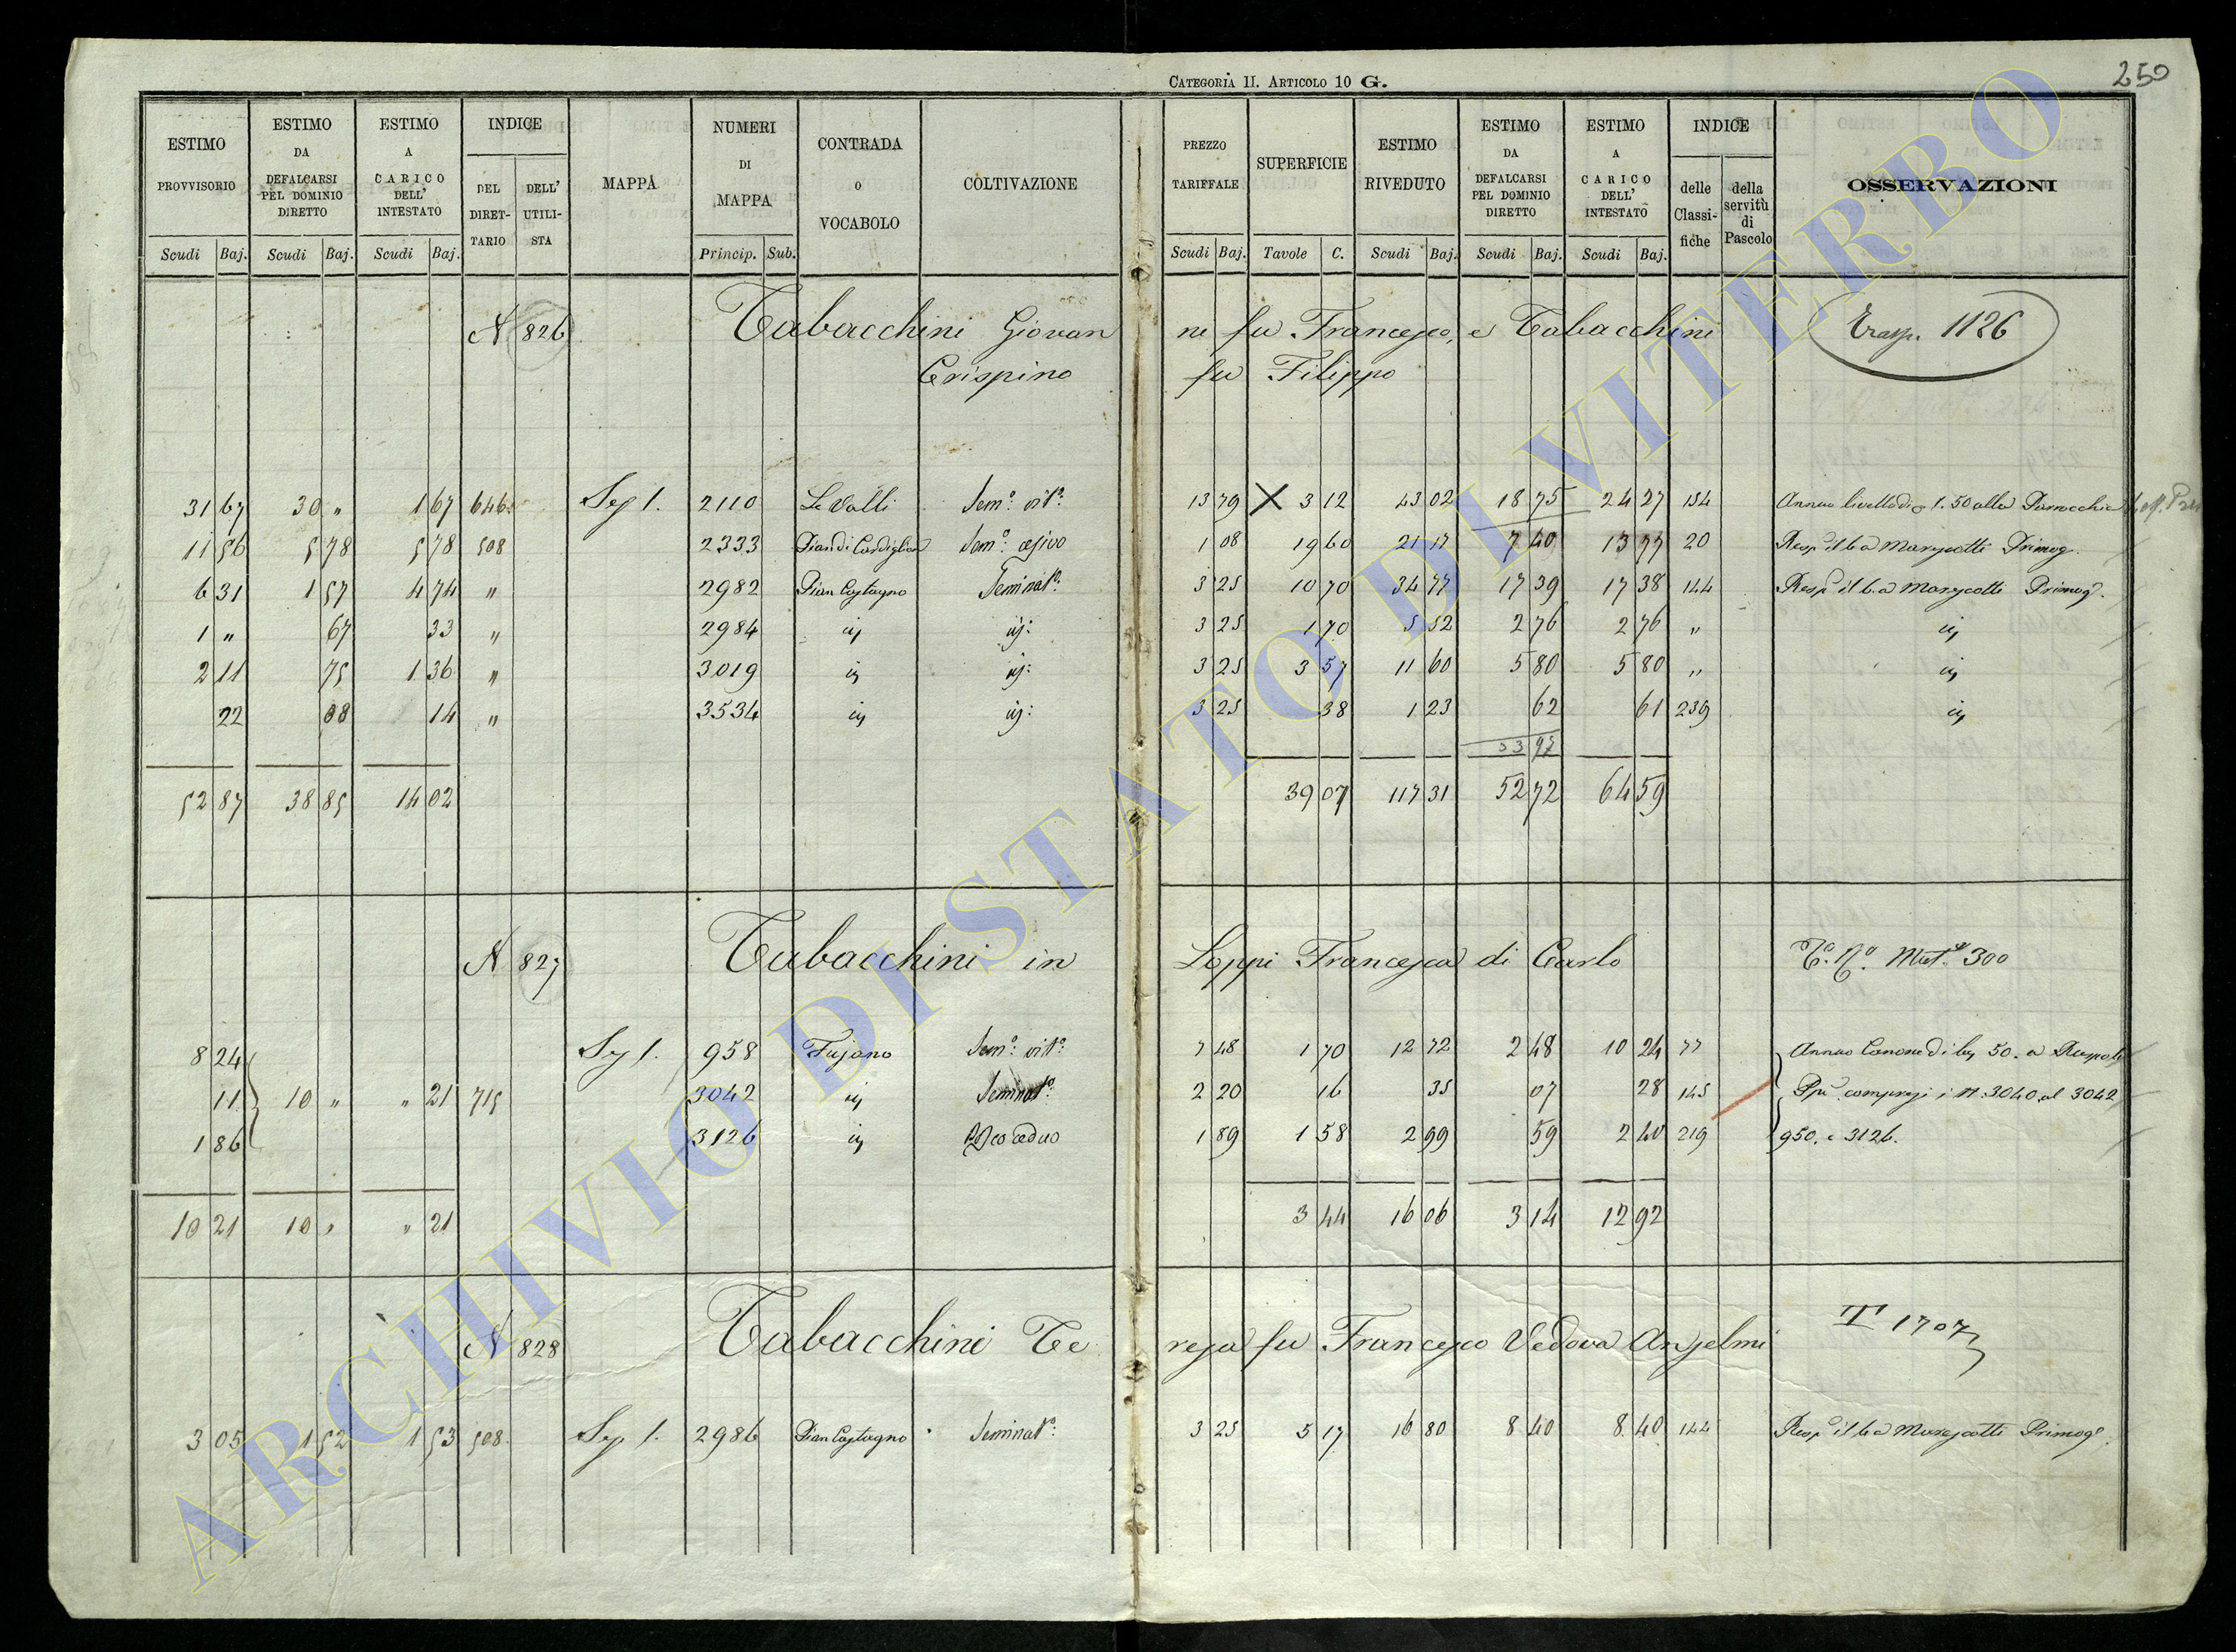 CATEGORIA II. ARTICOLO 10 G.
250
ESTIMO PROVVISORIO | ESTIMO DA DEFALCARSI PEL DOMINIO DIRETTO | ESTIMO A CARICO DELL' INTESTATO | INDICE DEL DIRET-TARIO | DELL' UTILI-STA | MAPPA | NUMERI DI MAPPA | CONTRADA O VOCABOLO | COLTIVAZIONE | PREZZO TARIFFALE | SUPERFICIE | ESTIMO RIVEDUTO | ESTIMO DA DEFALCARSI PEL DOMINIO DIRETTO | ESTIMO A CARICO DELL' INTESTATO | INDICE delle Classi-fiche | della servitù di Pascolo | OSSERVAZIONI
Scudi Baj. | Scudi Baj. | Scudi Baj. | Princip. Sub. | Scudi Baj. | Tavole C. | Scudi Baj. | Scudi Baj. | Scudi Baj.
N 826 Tabacchini Giovan ni fu Francesco, e Tabacchini Trasp. 1126
Crispino fu Filippo
31 67 30 " 1 67 646 Sez I. 2110 Le Valli Sem.o vit.o 13 79 X 3 12 43 02 18 75 24 27 154 Annuo livello di 1.50 alla Parrocchia
11 56 5 78 5 78 508 2333 Pian di Cardiglion Sem.o 1 08 19 60 21 17 7 40 13 77 20 Resp. il 6.a Marescotti Primog.
6 31 1 57 4 74 " 2982 Pian Castagno Seminat.o 3 25 10 70 34 77 17 39 17 38 144 Resp. il 6.a Marescotti Primog.
1 " 67 33 " 2984 id id: 3 25 1 70 5 52 2 76 2 76 " id
2 11 75 1 36 " 3019 id id: 3 25 3 57 11 60 5 80 5 80 " id
22 08 14 " 3534 id id: 3 25 38 1 23 62 61 239 id
53 97
52 87 38 85 14 02 39 07 117 31 52 72 64 59
N 827 Tabacchini in Loppi Francesca di Carlo Mut. 300
8 24 Sez I. 958 Fujano Sem.o vit.o 7 48 1 70 12 72 2 48 10 24 77 Annuo Canone di 50. a Ruspoli
11 10 " " 21 715 3042 id Seminat.o 2 20 16 35 07 28 145 compresi i N. 3040 al 3042
1 86 3126 id Bosco ceduo 1 89 1 58 2 99 59 2 40 219 950. e 3126.
10 21 10 " " 21 3 44 16 06 3 14 12 92
N 828 Tabacchini Te resa fu Francesco Vedova Anselmi T 1707
3 05 1 52 1 53 508 Sez I. 2986 Pian Castagno Seminat.o 3 25 5 17 16 80 8 40 8 40 144 Resp. il 6.a Marescotti Primog.
ARCHIVIO DI STATO DI VITERBO